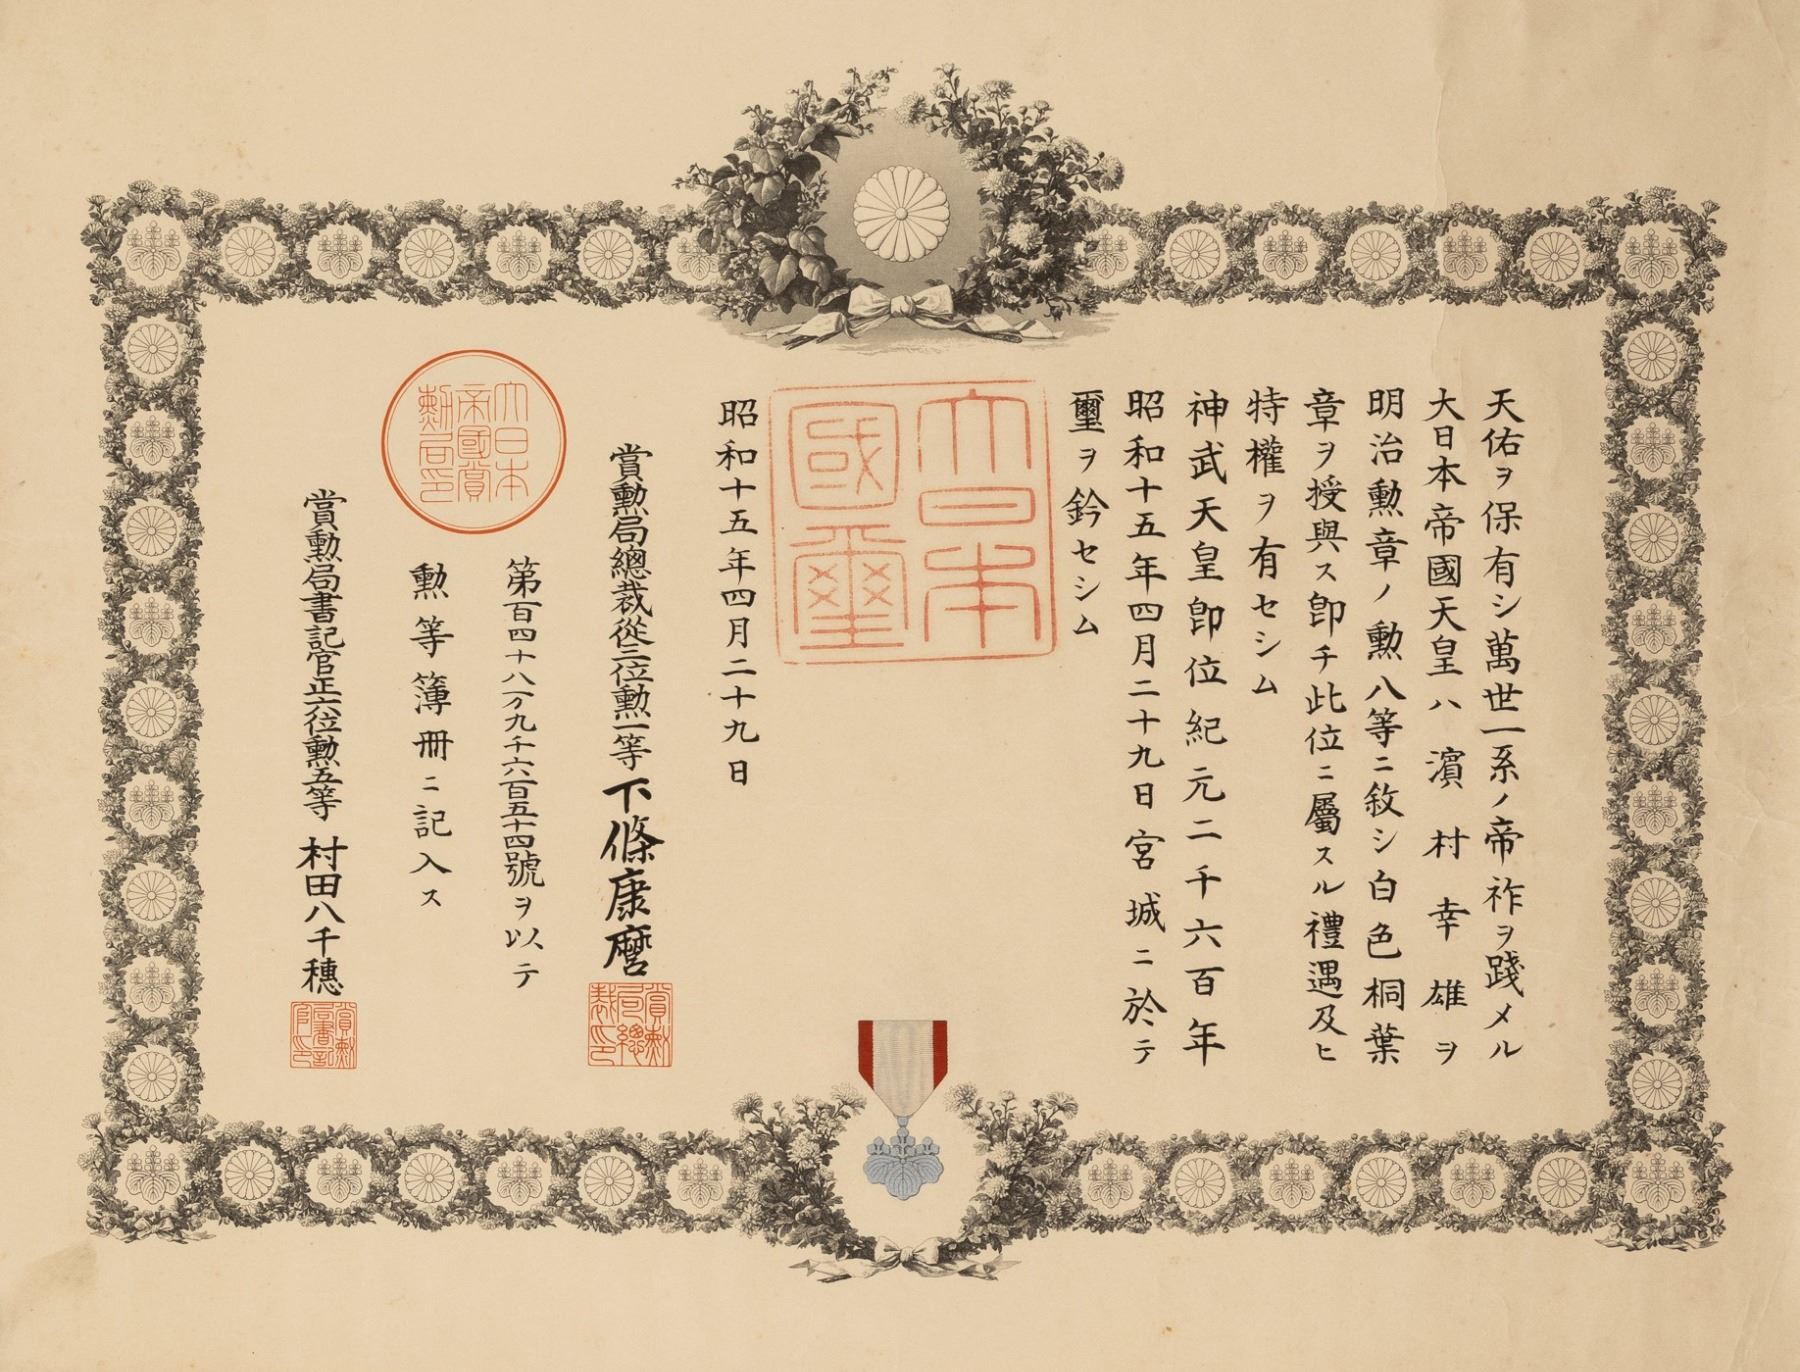 天佑ヲ保有シ萬世一系ノ帝祚ヲ踐メル
大日本帝國天皇ハ濱村幸雄ヲ
明治勲章ノ勲八等ニ敘シ白色桐葉
章ヲ授與ス卽チ此位ニ屬スル禮遇及ヒ
特權ヲ有セシム
神武天皇卽位紀元二千六百年
昭和十五年四月二十九日宮城ニ於テ
璽ヲ鈐セシム
大日本
國璽
昭和十五年四月二十九日
賞勲局總裁從三位勲一等下條康麿
賞勲局總裁印
第百四十八万九千六百五十四號ヲ以テ
勲等簿冊ニ記入ス
大日本帝國賞勲局印
賞勲局書記官正六位勲五等村田八千穗
賞勲局書記官印